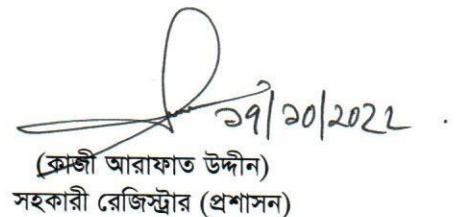 ১৭/১০/২০২২
(কাজী আরাফাত উদ্দীন)
সহকারী রেজিস্ট্রার (প্রশাসন)